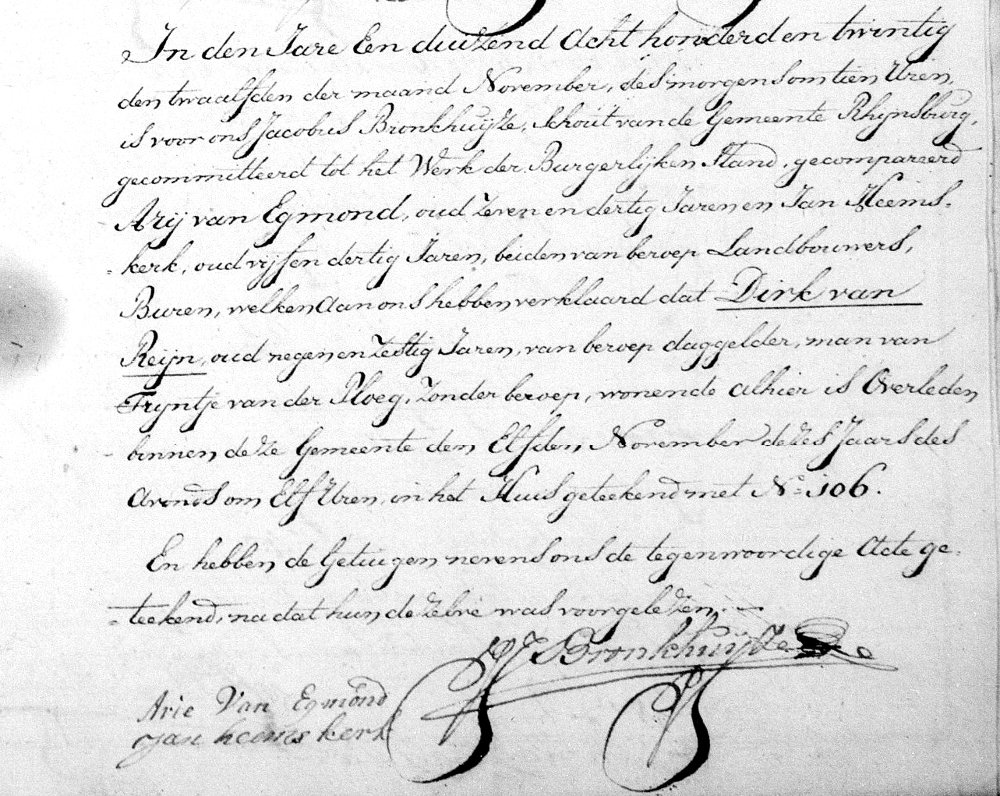 In den Jare Een duizend Acht honderd en twintig
den twaalfden der maand November, des morgens om tien Uren,
is voor ons Jacobus Bronkhuijze, Schout van de Gemeente Rhijnsburg,
gecommitteerd tot het Werk der Burgerlijken Stand, gecompareerd
Arij van Egmond, oud Zeven en dertig Jaren, en Jan Heems-
-kerk, oud vijf en dertig Jaren, beiden van beroep Landbouwers,
Buren, welken aan ons hebben verklaard dat Dirk van
Reijn, oud negen en Zestig Jaren, van beroep daggelder, man van
Tryntje van der Ploeg, Zonder beroep, wonende alhier is Overleden
binnen deze Gemeente den Elfden November dezes Jaars des
Avonds om Elf Uren, in het Huis geteekend met No. 106.
En hebben de Getuigen nevens ons de tegenwoordige Acte ge-
-teekend, na dat hun dezelve was voorgelezen.
J Bronkhuijze
Arie Van Egmond
Jan heems kerk